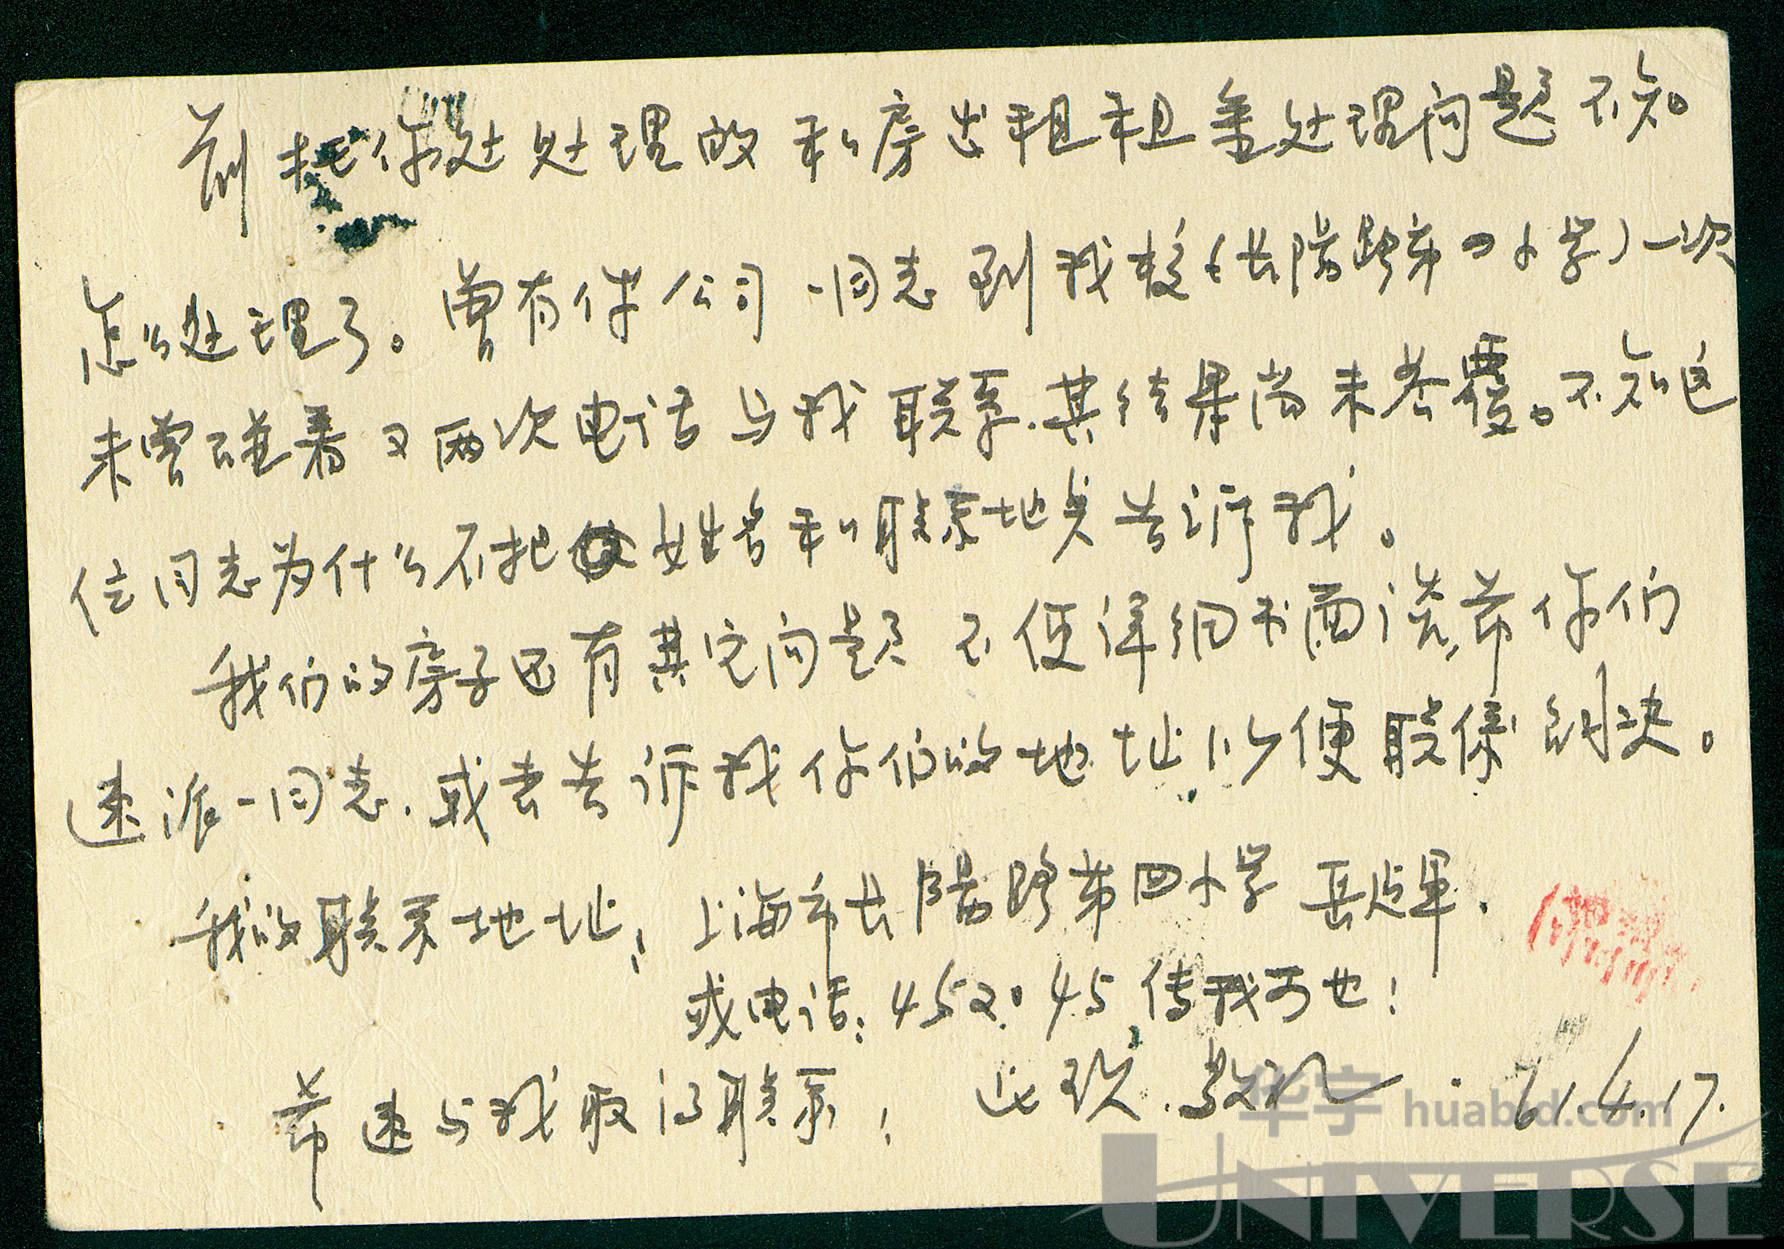 前托你处处理的私房出租租金处理问题不知
怎么处理了。曾有你公司一同志到我校(长阳路第四小学)一次
未曾碰着又两次电话与我联系.其结果尚未答覆。不知这
位同志为什么不把姓名和联系地点告诉我。
我们的房子还有其它问题不便详细书面谈,希你们
速派一同志.或者告诉我你们的地址以便联系解决。
我的联系地址:上海市长阳路第四小学
或电话:452045传我可也!
希速与我取得联系! 此致.敬礼 61.4.17.
华宇 huabid.com
UNIVERSE